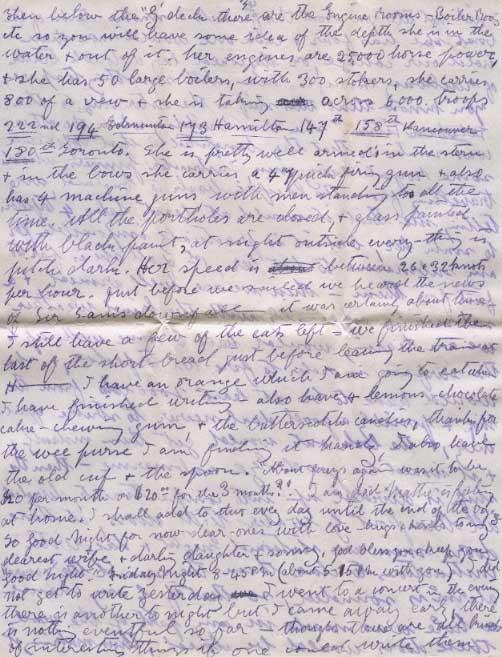 then below the "G" deck there are the Engine rooms - Boiler Rooms
etc so you will have some idea of the depth she is in the
water & out of it. her engines are 25000 horse power,
& she has 50 large boilers, with 300 stokers, she carries
800 of a crew & she is taking across 6000 troops
222nd 194 Edmonton 173 Hamilton 147th 158th Vancouver
180th Toronto. She is pretty well armed in the stern
& in the bows she carries a 4.7 inch firing gun & also
has 4 machine guns with men standing to all the
time. All the portholes are closed, & glass painted
with black paint, at night outside every-thing is
pitch dark. Her speed is between 26 & 32 knots
per hour. just before we sailed we heard the news
of Sir Sam's downfall it was certainly about time
I still have a few of the eats left we finished the
last of the short-bread just before leaving the train at
H I have an orange which I am going to eat when
I have finished writing also have 4 lemons chocolate
cake - chewing gum, & the butterscotch candies, thanks for
the wee purse I am finding it handy, I also have
the old cup & the spoon. About
$20 per month or $20 for the 3 months
at home. I shall add to this every day until the end of the
So good night for now dear ones with love hugs & kisses to my
dearest wife & darling daughter & sonny, god bless you & keep you
good night. Friday Night 8-45 PM (about 5 15 PM with you) I did
not get to write yesterday I went to a concert in the evening
there is another to night but I came away early, there
is nothing eventful so far though there are all kinds
of interesting things if one could write them